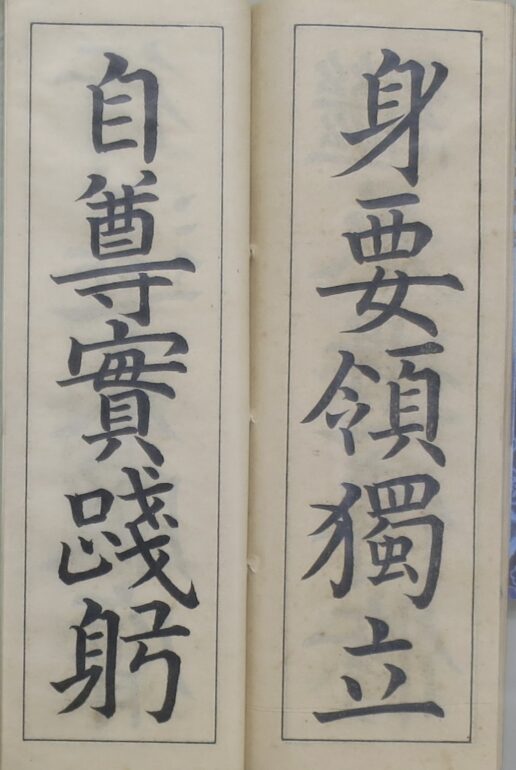 身要領獨立
自尊實踐躬